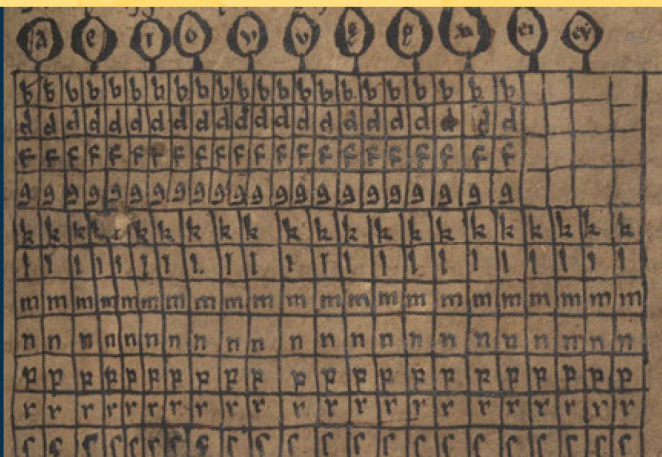 a e ı o w v ei ey
b b b b b b b b b b b b b b b b b b b b b b
d d d d d d d d d d d d d d d d d d d d d
f f f f f f f f f f f f f f f f f f f f f f
g g g g g g g g g g g g g g g g g g g g g g
k k k k k k k k k k k k k k k k k k k k
l l l l l l l l l l l l l l l l l l l l l l
m m m m m m m m m m m m m m m m m m m m m m
n n n n n n n n n n n n n n n n n n n n n n
p p p p p p p p p p p p p p p p p p p p p p
r r r r r r r r r r r r r r r r r r r r r r
ſ ſ ſ ſ ſ ſ ſ ſ ſ ſ ſ ſ ſ ſ ſ ſ ſ ſ ſ ſ ſ ſ